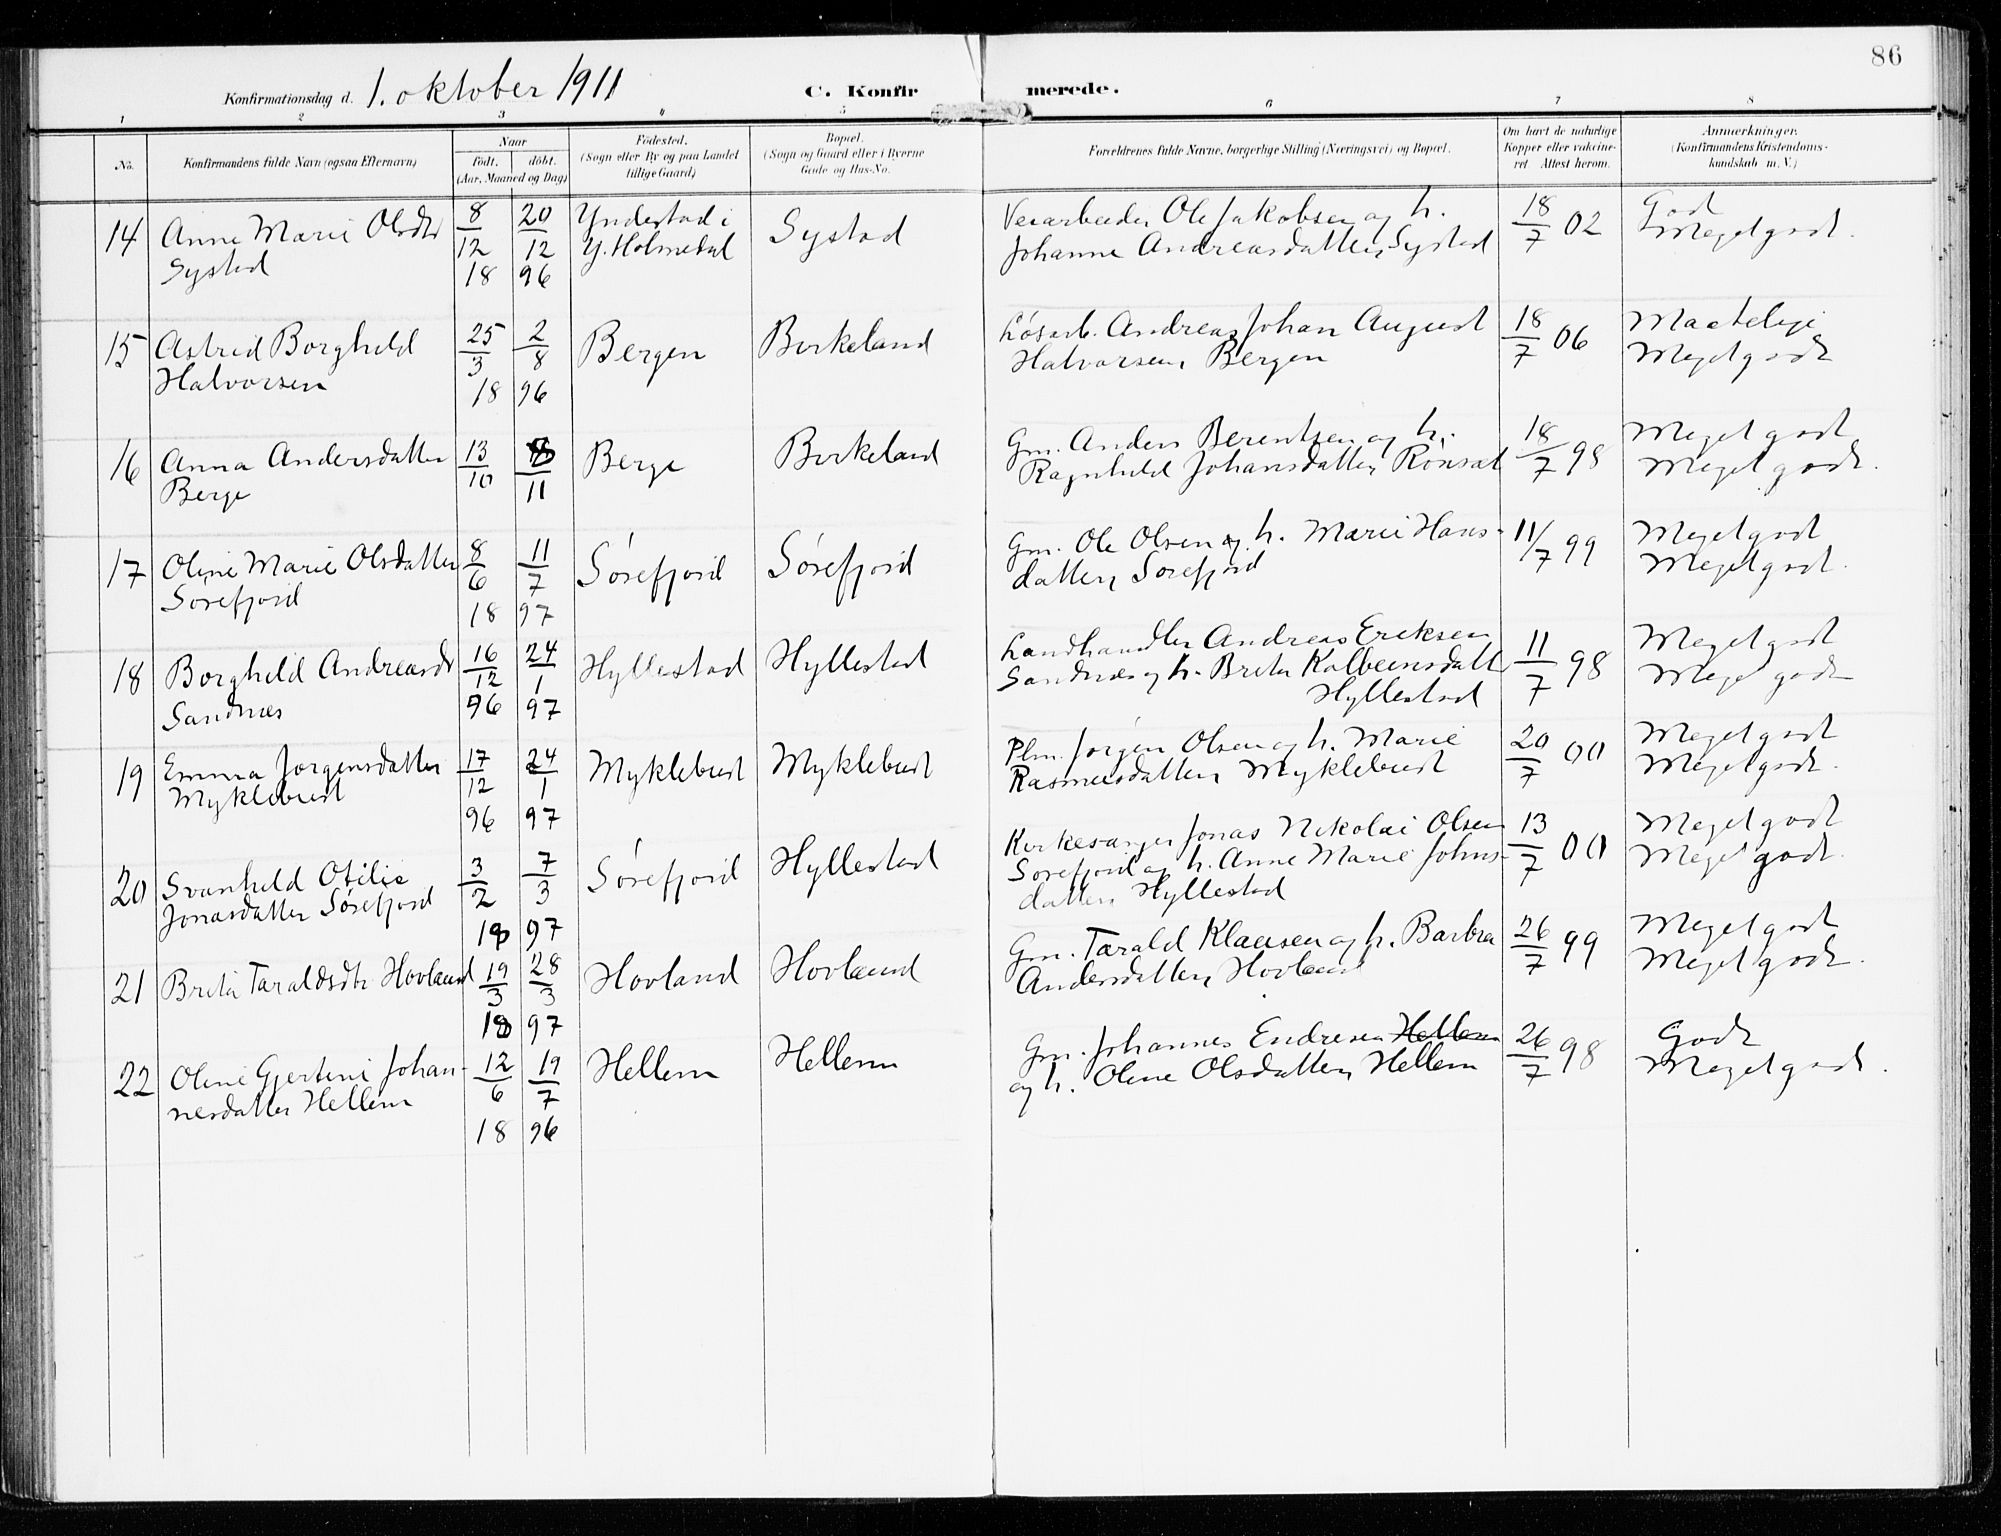 86
Konfirmationsdag d. 1. oktober 1911 C. Konfirmerede.
1 2 3 4 5 6 7 8
No. Konfirmandens fulde Navn (ogsaa Efternavn)
Naar
født. døbt.
(Aar, Maaned og Dag)
Fødested.
(Sogn eller By og paa Landet
tillige Gaard)
Bopæl.
(Sogn og Gaard eller i Byerne
Gade og Hus-No.
Forældrenes fulde Navne, borgerlige Stilling (Næringsvei) og Bopæl.
Om havt de naturlige
Kopper eller vakcine-
ret Attest herom.
Anmærkninger.
(Konfirmandens Kristendoms-
kundskab m. V.)
14 Anne Marie Olsdtr 8/12 20/12 Yndestad i Systad Ole Jakobsen og h. 18/7 02 Godt
Systad 18 96 Y. Holmedal Johanne Andreasdatter, Systad Megetgodt.
15 Astrid Borghild 25/3 2/8 Bergen Birkeland Løsarb. Andreas Johan August 18/7 06 Maateligt
Halvorsen 18 96 Halvorsen, Bergen Megetgodt
16 Anna Andersdatter 13/10 /11 Berge Birkeland Gm. Anders Berentsen og h. 18/7 98 Megetgodt
Berge Ragnhild Johansdatter, Meget godt.
17 Oline Marie Olsdatter 8/6 11/7 Sørefjord Sørefjord Gm. Ole Olsen og h. Marie Hans- 11/7 99 Megetgodt
Sørefjord 18 97 datter, Sørefjord Megetgodt.
18 Borghild Andreasdt 16/12 24/1 Hyllestad Hyllestad Landhandler Andreas Eriksen 11/7 98 Megetgodt
Sandnæs 96 97 Sandnæs og h. Brita Kolbeensdatt Meget godt
Hyllestad
19 Emma Jørgensdatter 17/12 24/1 Myklebust Myklebust Plm. Jørgen Olsen og h. Marie 20/7 00 Megetgodt
Myklebust 96 97 Rasmusdatter, Myklebust Megetgodt.
20 Svanhild Otilie 3/2 7/3 Sørefjord Hyllestad Kirkesanger Jonas Nikolai Olsen 13/7 00 Megetgodt
Jonasdatter Sørefjord 18 97 Sørefjord og h. Anne Marie Johns- Meget godt.
datter, Hyllestad
21 Brita Taraldsdtr Hovland 19/3 28/3 Hovland Hovland Gm. Tarald Klausen og h. Barbra 26/7 99 Megetgodt
18 97 Andersdatter, Hovland Megetgodt.
22 Oline Gjertine Johan- 12/6 19/7 Hellem Hellem Gm. Johannes Endresen Hellem 26/7 98 Godt
nesdatter Hellem 18 96 og h. Oline Olsdatter, Hellem Megetgodt.